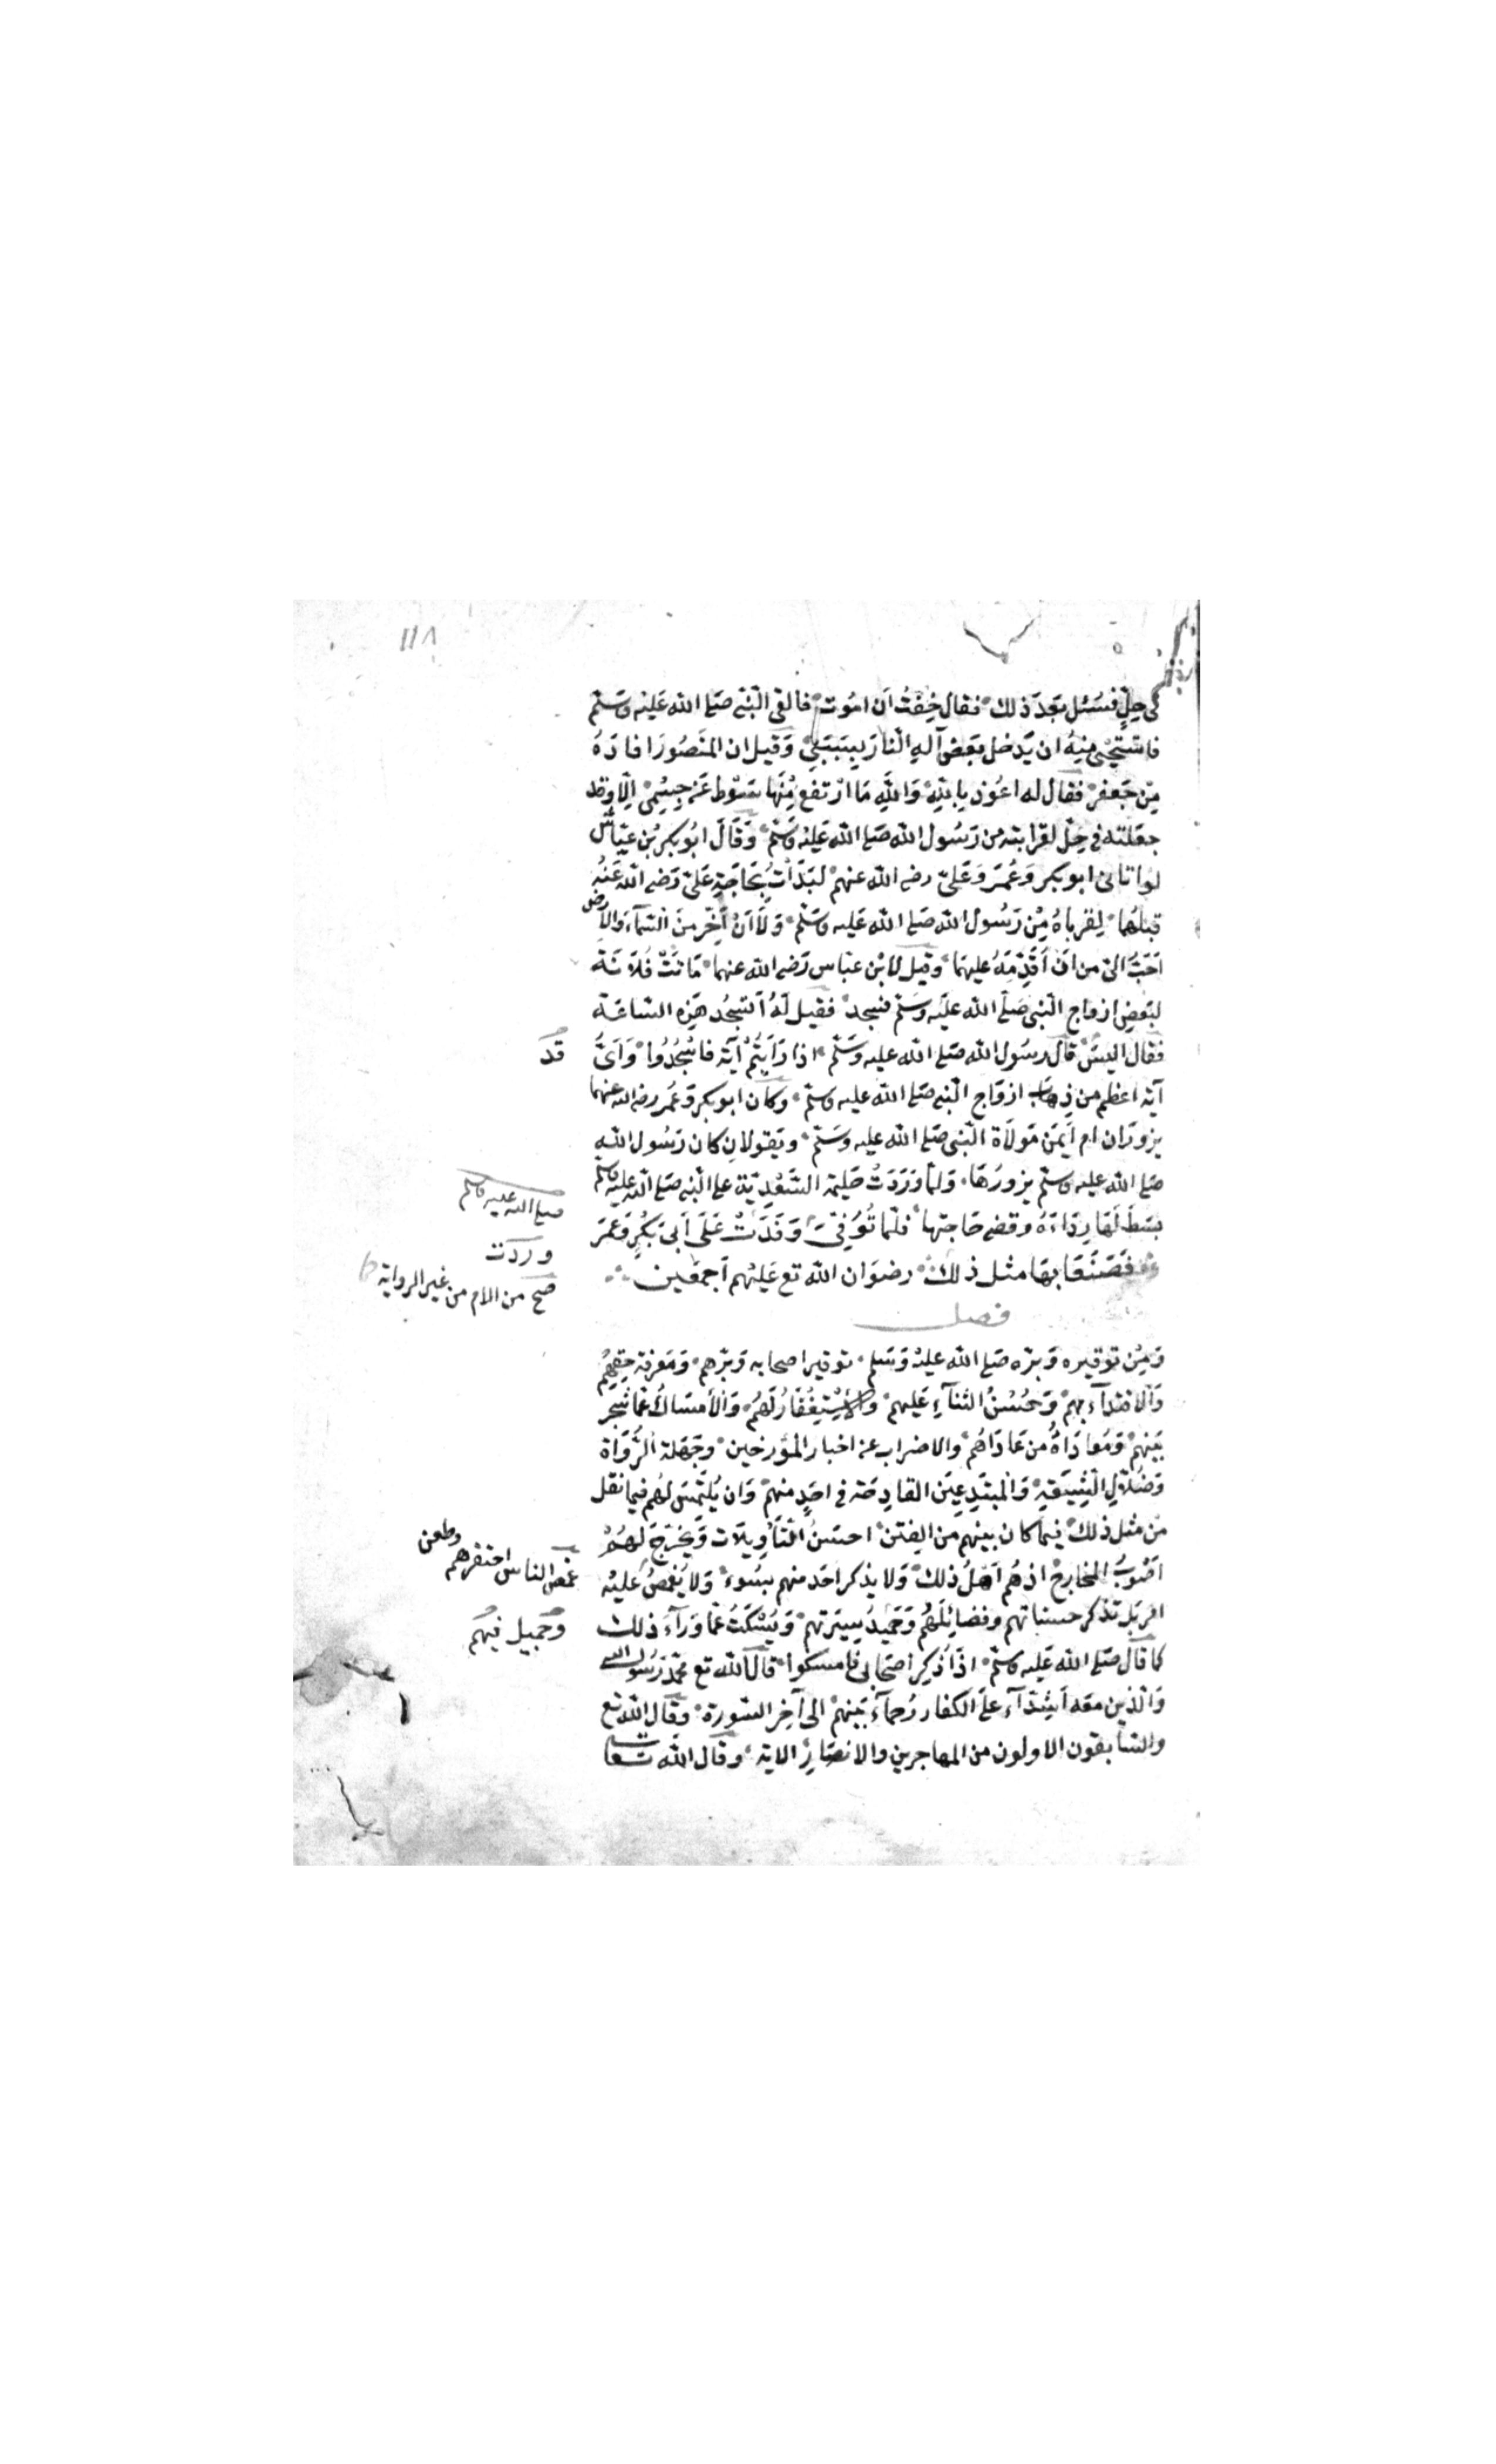 ١١٨
في حِلٍّ فسُئل بَعدَ ذلك فقال خِفْتُ اَن اموُت فالقى النبي صَلى الله عَليه وسَلم
فاستحيي منِهُ ان يَدخل بعَض آلهِ النّارَ بِسَبَبَبىِ وَقيل ان المنَصُورَ افادَهُ
مِن جَعفر فقال له اعُوذ بِاللهِ وَاللهِ مَا ارْتفع مِنَها سَوْط عَن جِسْمِي اِلّا وقد
جعَلته في حِلّ لقرابته من رَسُول الله صَلى الله عَليه وسَلم وَقَالَ ابُو بكر بُن عَيّاش
لو اتانى ابو بكر وَعُمَر وَعَلىّ رضى الله عنهم لبَدَأتُ بِحَاجَةِ عَلىّ رَضى الله عَنْهُ
قبلهُما لِقرباهُ مِنْ رَسُول الله صَلى الله عَليه وسَلّم وَلَاَنْ اَخِّر مِنَ السّمآءِ وَالاَرض
اَحَبُّ الىّ من اَنْ اُقَدِّمَهُ عليهَما وقيل لابْن عبّاس رَضى الله عنهما مَاتَتْ فُلاَنَة
لبَعضِ ازواج النّبى صَلّى الله علَيْه وَسَلّم فسَجد فقيل لَهُ اَتسْجُد هَذِه السّاعَة
فقال اليسَ قال رسُول الله صَلى الله عليه وسَلّم اذا رَاَيتُمْ آية فاسْجُدُوا وَاَىُّ
قد
آية اعظم من ذِهاب ازوَاج النّبى صَلى الله عليه وسلم وكان ابو بكر وَعُمَر رضى الله عنهما
يزورَان ام اَيمَنَ مَولَاة النّبى صَلى الله عليه وسَلّم ويَقولانِ كان رَسُول الله
صَلى الله عليه وسلم يزورُهَا وَلمّا وَرَدَتْ حَليمَة السَّعْدِيّة على النّبى صَلى الله عليه وسلم
صلى الله عليه وسلم
بسَطَ لهَا رِدَاءَهُ وقضى حَاجتها فلمّا تُوُفِّىَ وَفَدَتْ عَلَى اَبى بَكْرٍ وَعُمَرَ
وردت
فَصَنَعَا بهَا مثل ذلك رضوَان الله تع عَليْهم اَجمعَين
صح من الام من غير الرواية
فصل
وَمِنْ توقيره وَبرّه صَلى الله عليْهْ وَسَلم توقير اصحابه وَبرّهم وَمَعرفة حَقِّهِمْ
وَالاقتدآء بهمْ وَحُسْنُ الثنآءِ عَليهمْ والاِسْتِغْفَارُ لَهُمْ وَالأمسَاكُ عَمّا شَجَر
بَينهمْ وَمُعادَاةُ من عَادَاهُمْ والاضراب عن اخبار المؤرخين وجَهَلة الرُّوَاة
وَضُلاّلِ الشِّيعَةِ وَالمبتَدِعِينَ القادِحَة فى احَدٍ منهمْ وَان يُلتَمسَ لهُم فيما نقل
من مثل ذلك فيما كان بينهم من الفتن احسَنُ التَّأويلَات وَيُخَرَّجَ لهُمْ
اَصْوَبُ المخارج اذ هُم اَهْلُ ذلك وَلا يذكر احَد منهم بسُوء وَلا يُغمَصُ عليْه
غمص الناس احتقرهم وطعن
امر بَل تذكر حسناتهم وفضائلهُمْ وَحَميدُ سِيرَتهم وَيُسْكَتُ عَمّا وَرآءَ ذلك
وجميل فيهم
كما قال صَلى الله عَليه وسلم اذا ذكِر اَصحَابى فامسكوا قال الله تع محمّدٌ رَسُول الله
وَالّذين معَه اَشِدّآء علَى الكفار رُحمآء بَينهمْ الى آخِر السّورة وقال الله تع
والسّابقون الاولون من المهاجرين والانصَارِ الاية وقال الله تَعَالى